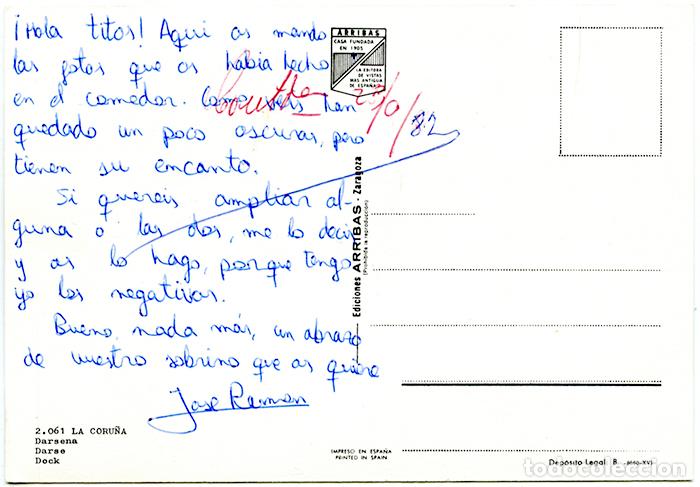 ¡Hola titos! Aquí os mando
las fotos que os había hecho
en el comedor. Como veis han
quedado un poco oscuras, pero
tienen su encanto.
Si quereis ampliar al-
guna ó las dos, me lo decis
y os lo hago, porque tengo
yo los negativos.
Bueno nada más, un abrazo
de vuestro sobrino que os quiere
Jose Ramon
10/82
ARRIBAS
CASA FUNDADA
EN 1905
LA EDITORA
DE VISTAS
MAS ANTIGUA
DE ESPAÑA
Ediciones ARRIBAS - Zaragoza
(Prohibida la reproducción)
2.061 LA CORUÑA
Darsena
Darse
Dock
IMPRESO EN ESPAÑA
PRINTED IN SPAIN
Depósito Legal B.
todocoleccion